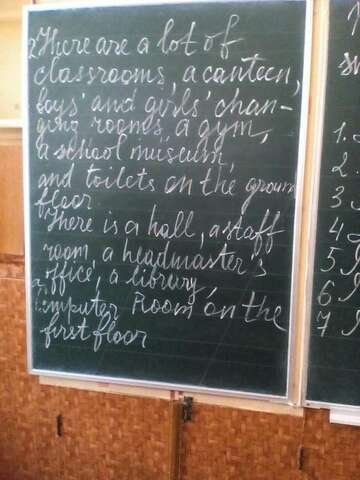 2. There are a lot of
classrooms, a canteen,
boys' and girls' chan-
ging rooms, a gym,
a school museum,
and toilets on the groun
floor
There is a hall, a staff
room, a headmaster's
office, a library,
computer Room on the
first floor
1.
2.
3
4
5
6
7